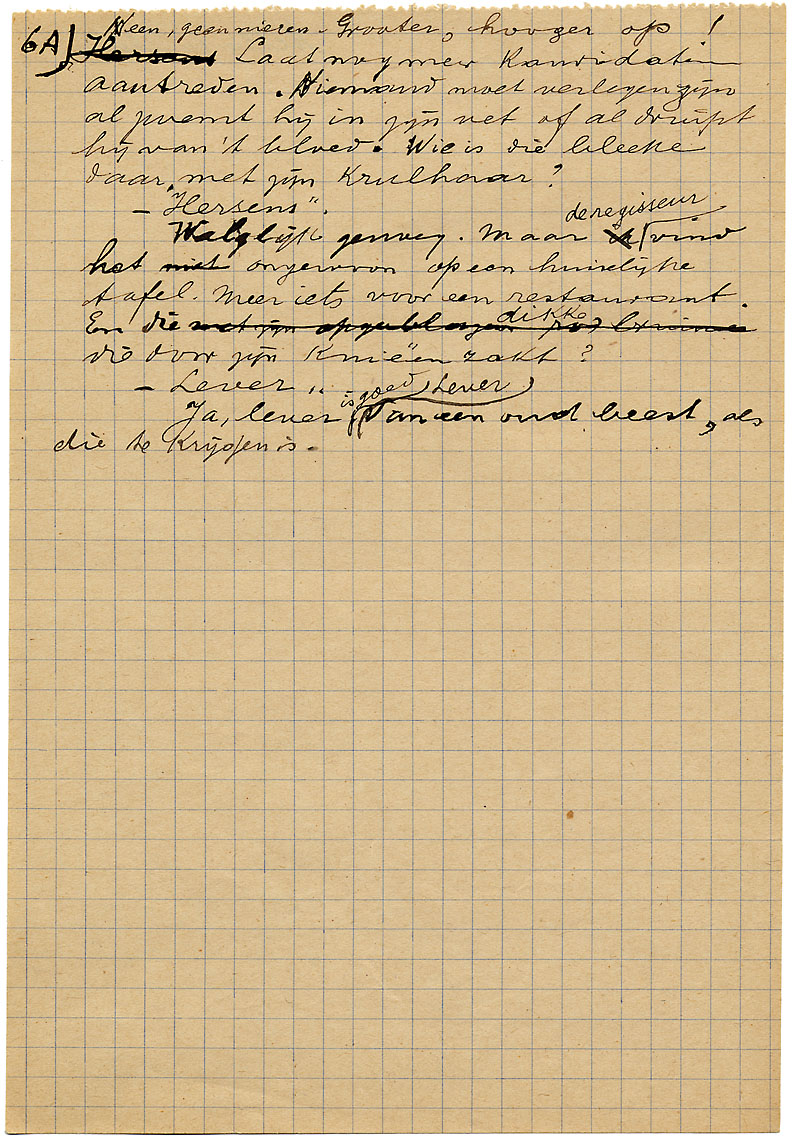 Neen, geen nieren. Grooter, hooger op!
6A) Hersens Laat nog meer Kandidaten
aantreden. Niemand moet verlegen zijn
al zwemt hij in zijn vet of al druipt
hij van 't bloed. Wie is die bleeke
daar, met zijn Krulhaar?
– "Hersens".
de regisseur
Walglijk genoeg. Maar ik vind
het niet ongewoon op een huiselijke
tafel. Meer iets voor een restaurant.
dikke
En die met zijn opgeblazen
die door zijn Knieën zakt?
– Lever "
is goed, Lever
Ja, lever van een oud beest, als
die te Krijgen is.